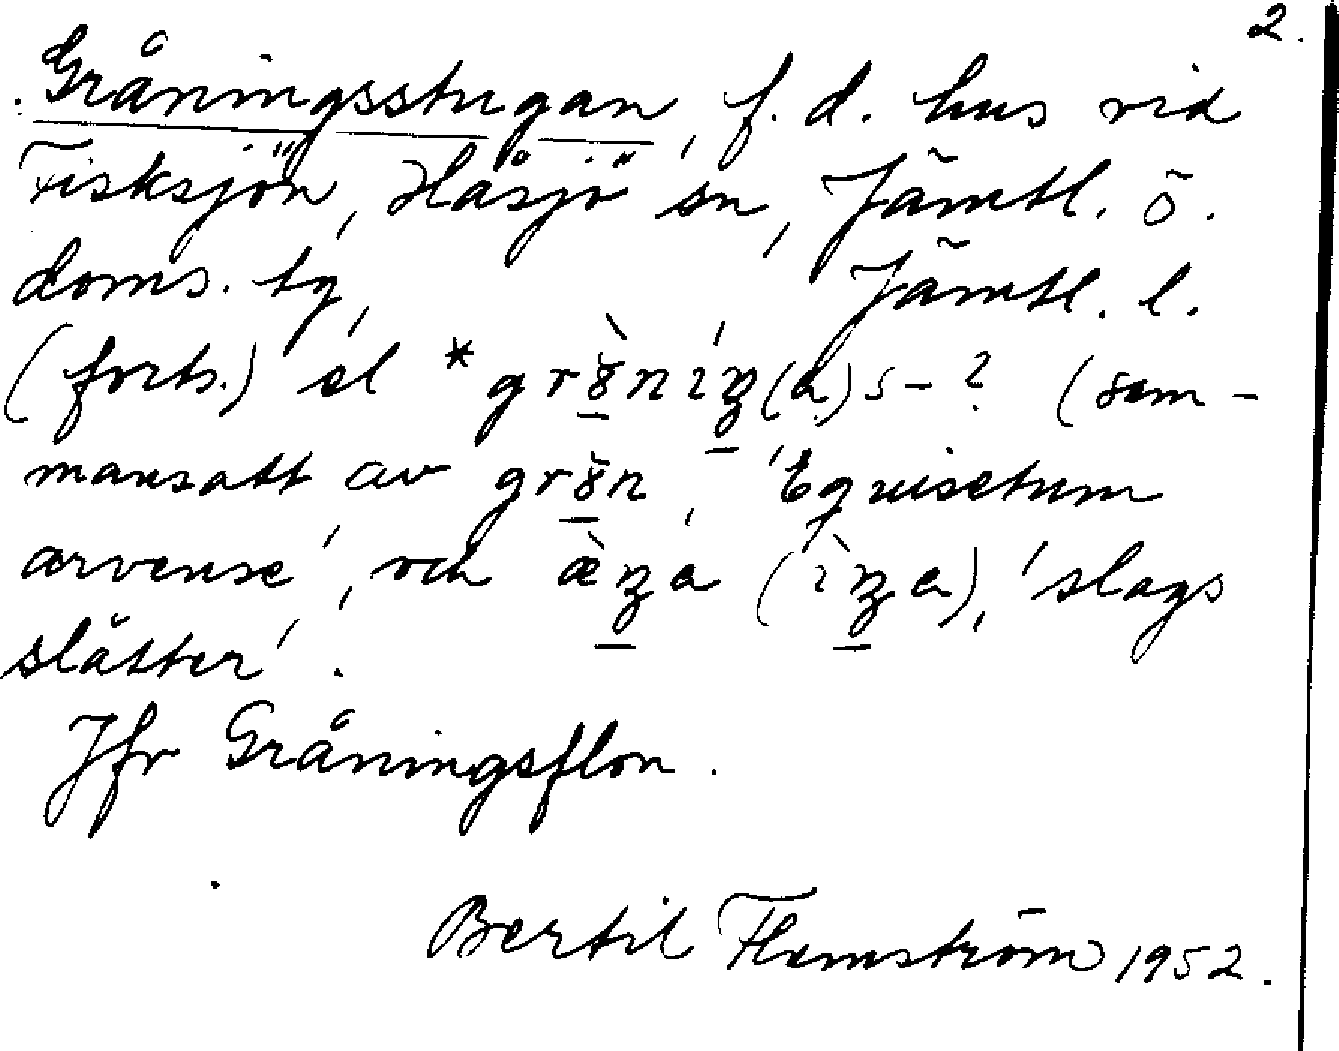 2.
Gråningsstugan, f. d. hus vid
Fisksjön, Håsjö sn, Jämtl. ö.
doms. tg, Jämtl. l.
(forts.) el *grɤ̀níŋ(a)s-? (sam-
mansatt av grɤ̀n, 'Equisetum
arvense', och æ̀ŋa (ìŋa), 'slags
slåtter'.
Jfr Gråningsflon.
Bertil Flemström 1952.